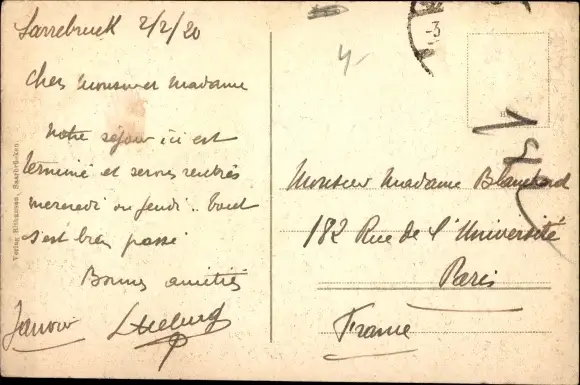 Sarrebruck 2/2/20
Cher Monsieur Madame
Notre séjour ici est
terminé et serons rentrés
mercredi ou jeudi.. Tout
s'est bien passé
Bonnes amitiés
Monsieur Madame Blanchard
182 Rue de l'Université
Paris
France
Verlag Saarbrücken.
4-
-3